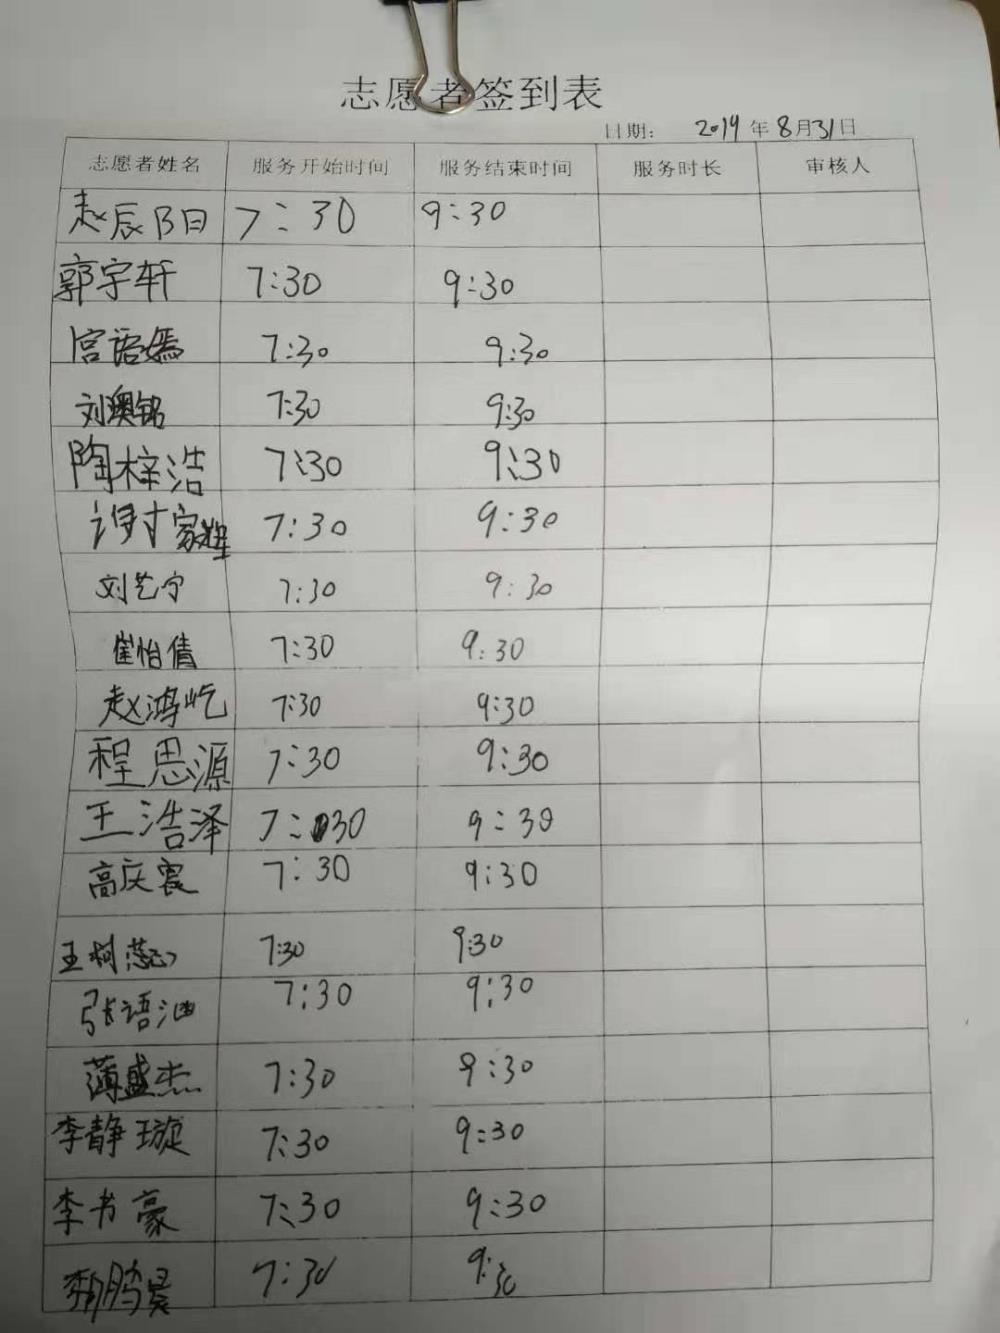 志愿者签到表
日期: 2019年8月31日
志愿者姓名 服务开始时间 服务结束时间 服务时长 审核人
赵辰阳 7:30 9:30
郭宇轩 7:30 9:30
宫语嫣 7:30 9:30
刘奥铭 7:30 9:30
陶梓浩 7:30 9:30
谭家耀 7:30 9:30
刘艺宁 7:30 9:30
崔怡倩 7:30 9:30
赵鸿屹 7:30 9:30
程思源 7:30 9:30
王浩泽 7:30 9:30
高庆震 7:30 9:30
王柯蕊 7:30 9:30
张语 7:30 9:30
薄盛杰 7:30 9:30
李静璇 7:30 9:30
李书豪 7:30 9:30
鹏昊 7:30 9:30